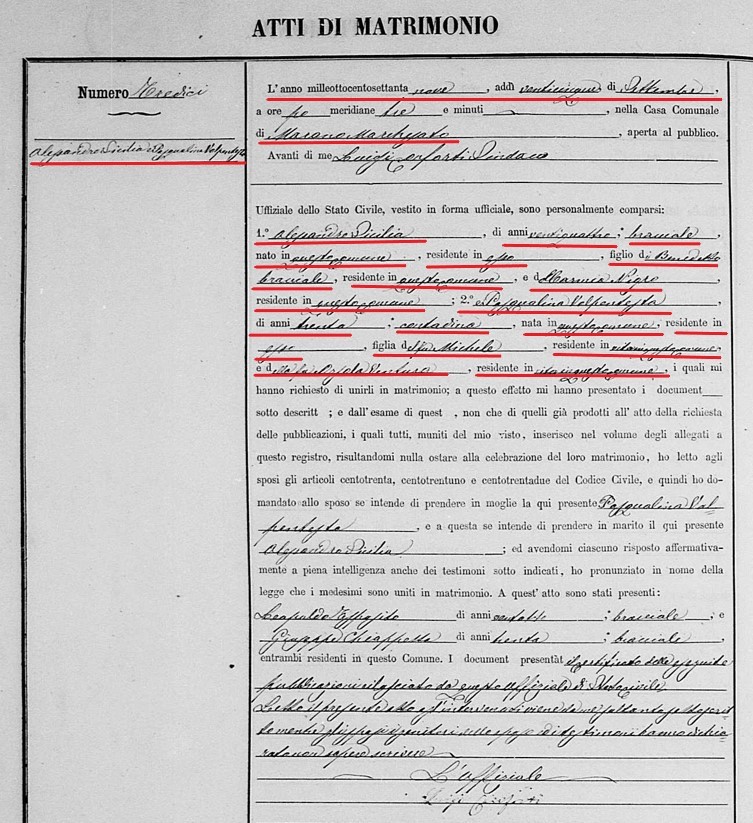 ATTI DI MATRIMONIO
Numero Tredici
Alessandro Sicilia e Pasqualina Valpentesta
L'anno milleottocentosettanta nove, addì venticinque di Settembre,
a ore po meridiane tre e minuti, nella Casa Comunale
di Marano Marchesato, aperta al pubblico.
Avanti di me Luigi Conforti Sindaco
Uffiziale dello Stato Civile, vestito in forma ufficiale, sono personalmente comparsi:
1.° Alessandro Sicilia, di anni ventiquattro; bracciale,
nato in questo comune, residente in esso, figlio di Benedetto
bracciale, residente in questo comune, e di Carmia Nigro
residente in questo comune; 2.° e Pasqualina Valpentesta,
di anni trenta; contadina, nata in questo comune, residente in
esso, figlia del fu Michele, residente in vita in questo comune
e della fu Orsola Ventura, residente in vita in questo comune, i quali mi
hanno richiesto di unirli in matrimonio; a questo effetto mi hanno presentato i document
sotto descritt ; e dall'esame di quest , non che di quelli già prodotti all' atto della richiesta
delle pubblicazioni, i quali tutti, muniti del mio visto, inserisco nel volume degli allegati a
questo registro, risultandomi nulla ostare alla celebrazione del loro matrimonio, ho letto agli
sposi gli articoli centotrenta, centotrentuno e centotrentadue del Codice Civile, e quindi ho do-
mandato allo sposo se intende di prendere in moglie la qui presente Pasqualina Val=
pentesta, e a questa se intende di prendere in marito il qui presente
Alessandro Sicilia; ed avendomi ciascuno risposto affermativa-
mente a piena intelligenza anche dei testimoni sotto indicati, ho pronunziato in nome della
legge che i medesimi sono uniti in matrimonio. A quest' atto sono stati presenti:
Leopoldo Esposito di anni ; bracciale; e
Giuseppe Chiappetta di anni trenta; bracciale,
entrambi residenti in questo Comune. I document presentàt il certificato delle eseguite
pubblicazioni rilasciato da questo uffiziale di Stato civile
Letto il presente atto a gl'intervenuti viene da me soltanto sottoscrit
to mentre gli sposi i genitori dello sposo ed i testimoni hanno dichia
rato non sapere scrivere
L'officiale
Luigi Conforti